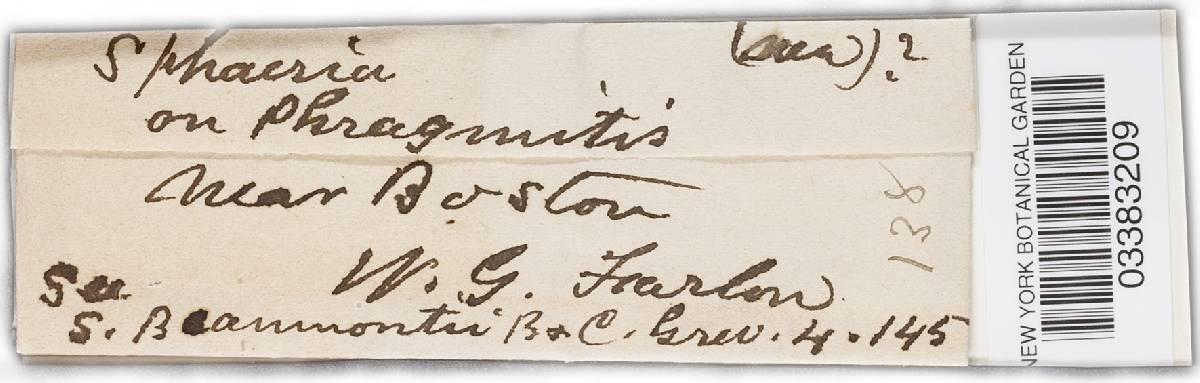 Sphaeria (nova)?
on Phragmitis
Near Boston
W. G. Farlow
See
S. Beaumontii B & C. Grev. 4. 145
138
NEW YORK BOTANICAL GARDEN
03383209